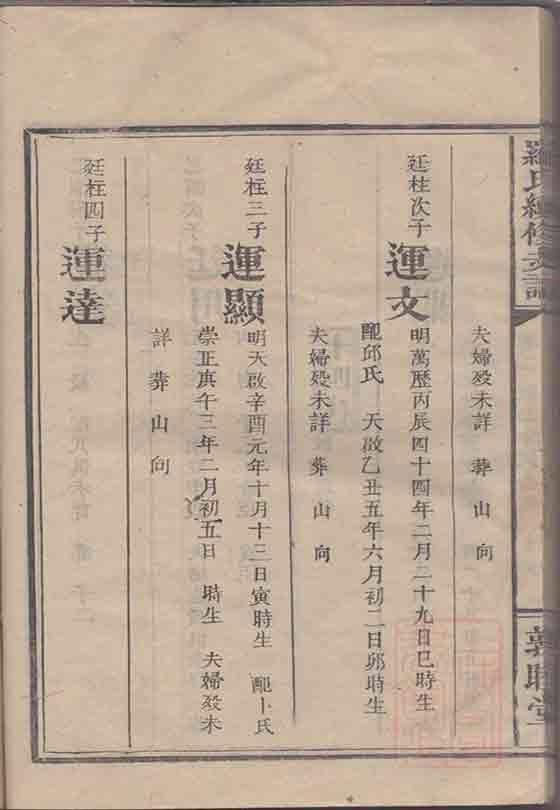 羅氏續修支譜
敦睦堂
夫婦歿未詳 葬 山 向
廷柱次子
運文
明萬歷丙辰四十四年二月二十九日巳時生
配邱氏 天啟乙丑五年六月初二日卯時生
夫婦歿未詳 葬 山 向
廷柱三子
運顯
明天啟辛酉元年十月十三日寅時生 配卜氏
崇正庚午三年二月初五日 時生 夫婦歿未
詳 葬 山 向
廷柱四子
運達